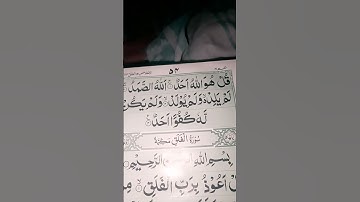 ٥٣
قُلْ هُوَ اللّٰهُ اَحَدٌ اَللّٰهُ الصَّمَدُ
لَمْ يَلِدْ وَلَمْ يُوْلَدْ وَلَمْ يَكُنْ
لَّهٗ كُفُوًا اَحَدٌ
سُوْرَةُ الْفَلَقِ مَكِّيَّةٌ
بِسْمِ اللّٰهِ الرَّحِيْمِ
اَعُوْذُ بِرَبِّ الْفَلَقِ مِنْ